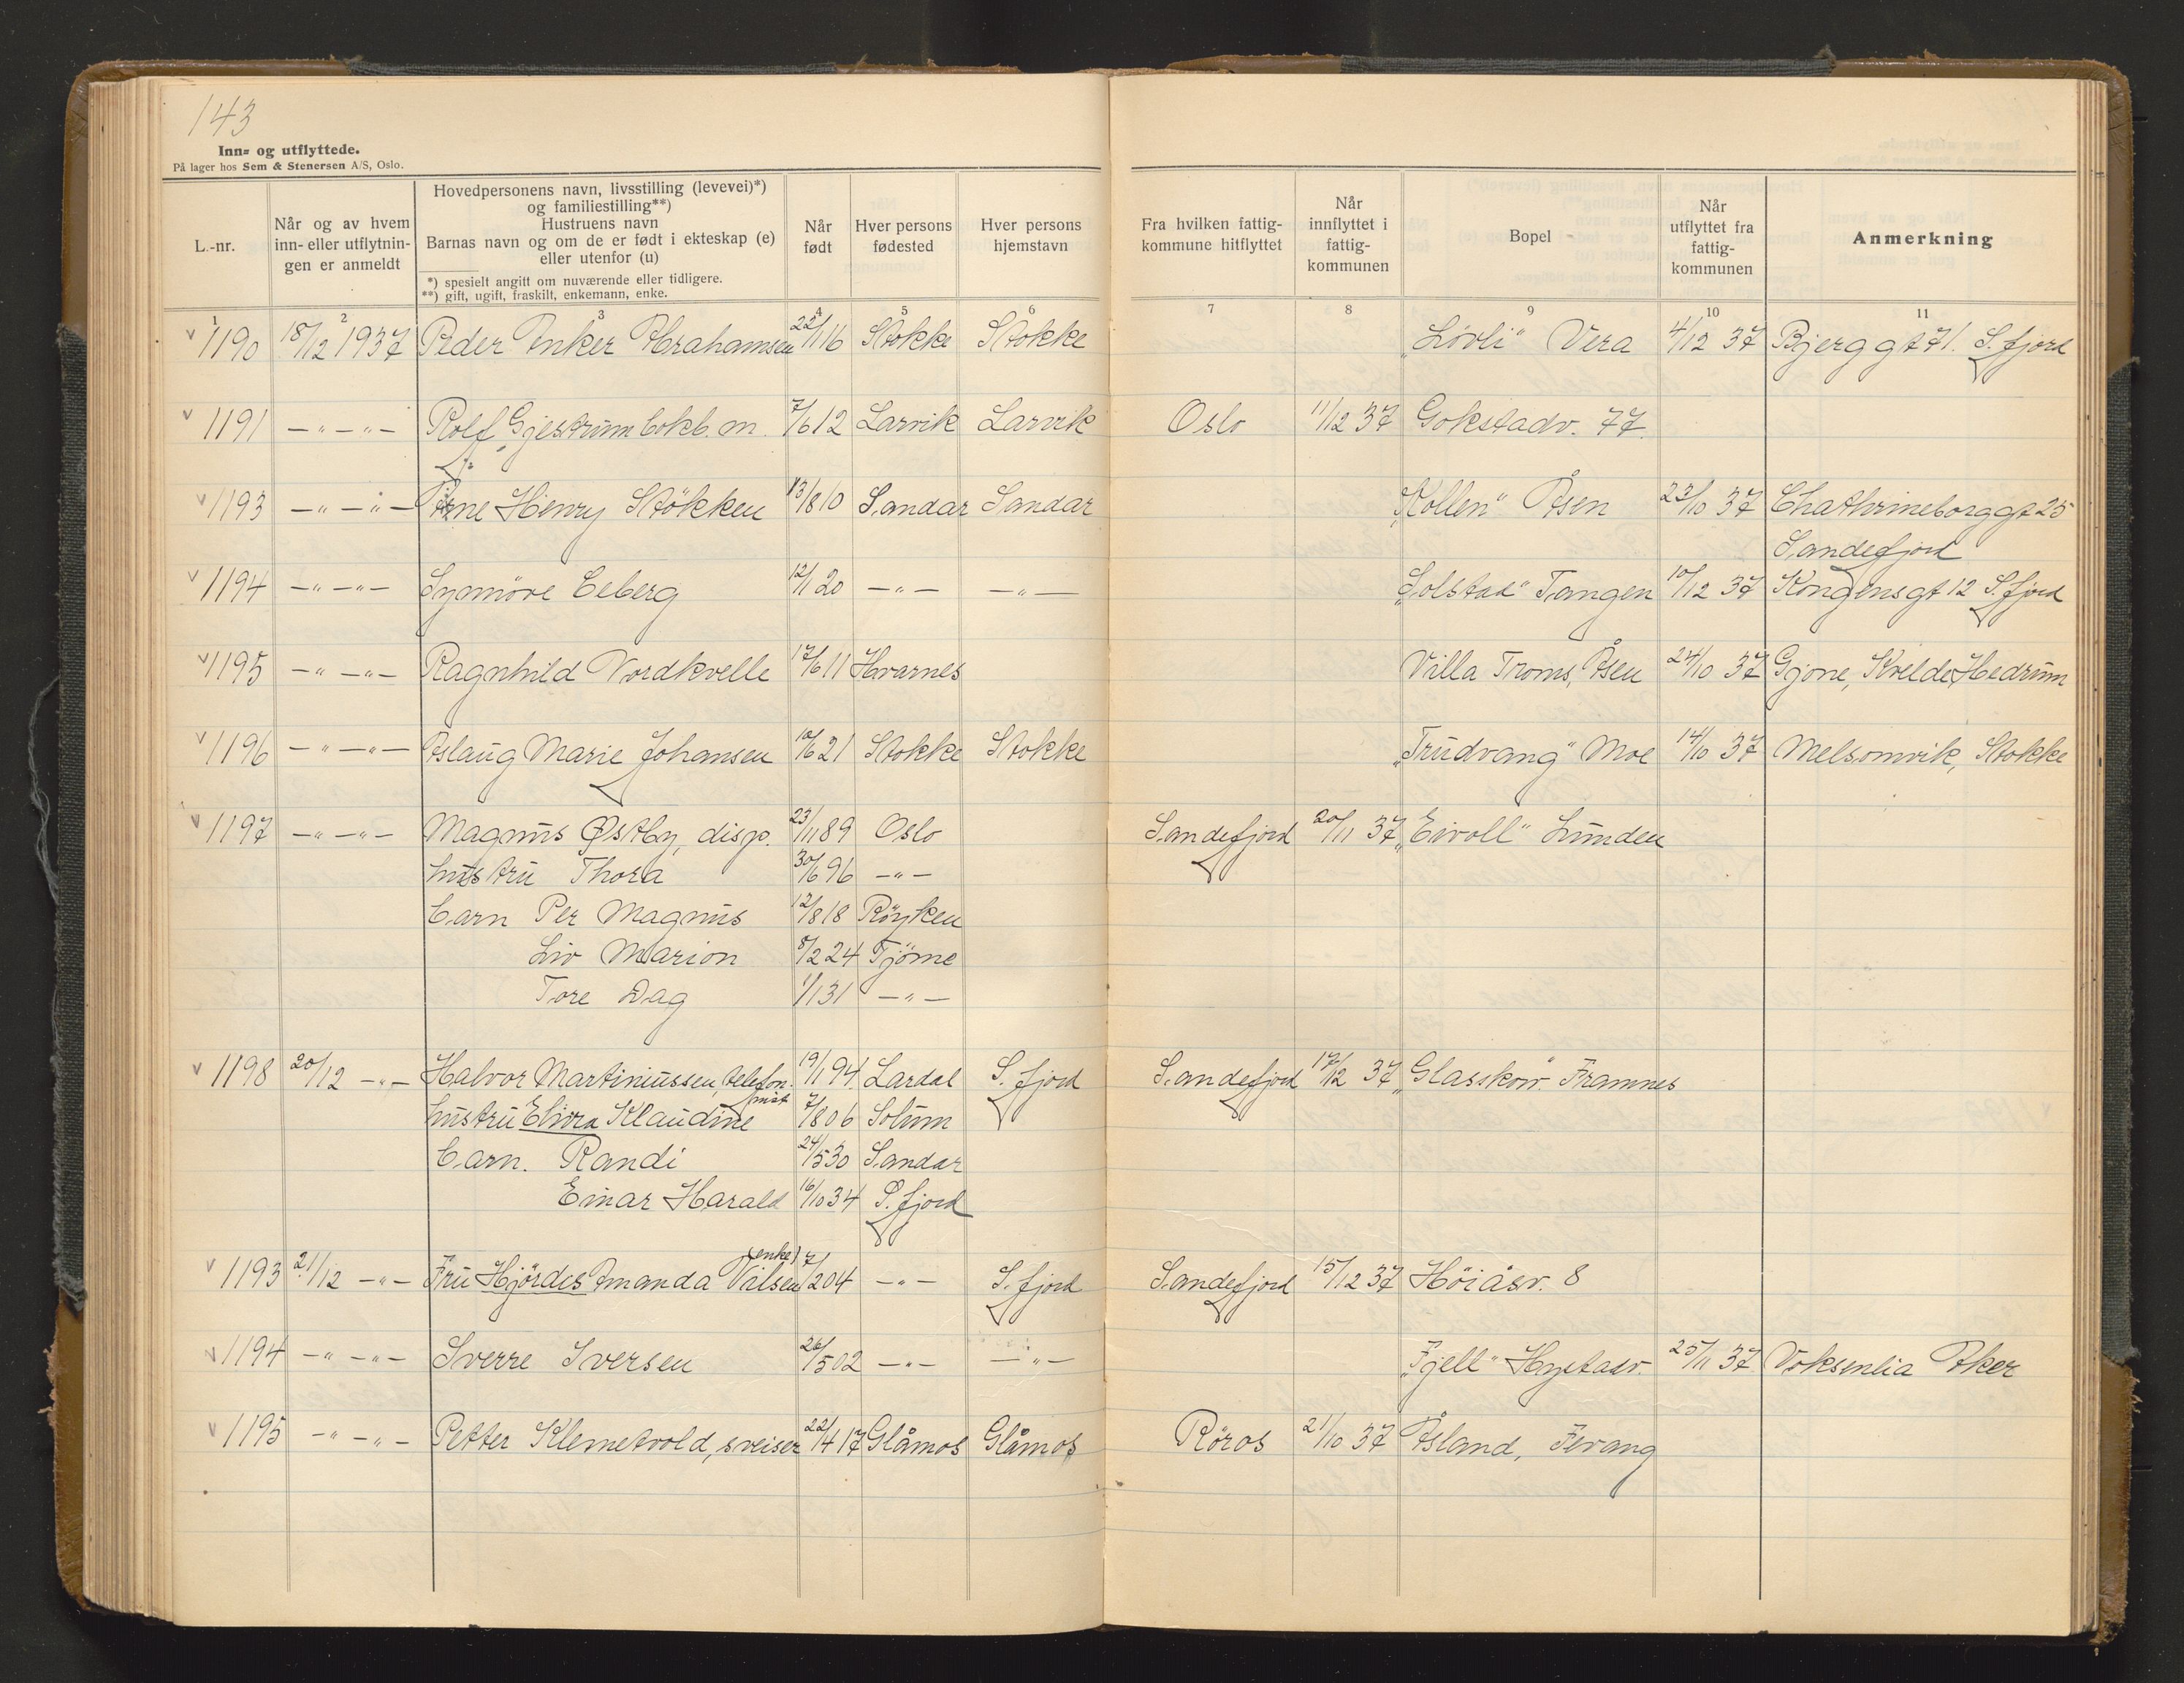 143
Inn- og utflyttede.
På lager hos Sem & Stenersen A/S, Oslo.
L.-nr.
Når og av hvem inn- eller utflytnin-gen er anmeldt
Hovedpersonens navn, livsstilling (levevei)*) og familiestilling**)
Hustruens navn
Barnas navn og om de er født i ekteskap (e) eller utenfor (u)
*) spesielt angitt om nuværende eller tidligere.
**) gift, ugift, fraskilt, enkemann, enke.
Når født
Hver persons fødested
Hver persons hjemstavn
Fra hvilken fattig-kommune hitflyttet
Når innflyttet i fattig-kommunen
Bopel
Når utflyttet fra fattig-kommunen
Anmerkning
1 2 3 4 5 6 7 8 9 10 11
v 1190 18/12 1937 Peder Anker Abrahamsen 22/1 16 Stokke Stokke „Lövli" Vera 4/12 37 Bjerggt 71. S.fjord
v 1191 -"-"- Rolf Gjestrum bokb. m. 7/6 12 Larvik Larvik Oslo 11/12 37 Gokstadv. 77.
v 1193 -"-"- Arne Henry Stökken 13/8 10 Sandar Sandar „Kollen" Åsen 23/10 37 Chathrineborggt 25
Sandefjord
v 1194 -"-"- Synnöve Ceberg 12/1 20 -"- -"- „Solstad" Tangen 10/12 37 Kongensgt 12 S.fjord
v 1195 -"-"- Ragnhild Nordkvelle 17/6 11 Hvarnes Villa Troms, Åsen 24/10 37 Gjone, Kvelde, Hedrum
v 1196 -"-"- Aslaug Marie Johansen 10/6 21 Stokke Stokke „Trudvang" Moe 14/10 37 Melsomvik, Stokke
v 1197 -"-"- Magnus Østby, disp. 23/11 89 Oslo Sandefjord 20/11 37 „Eivoll" Lunden
hustru Thora 30/6 96 -"-
barn Per Magnus 12/8 18 Röyken
Liv Marion 8/2 24 Tjöme
Tore Dag 1/1 31 -"-
v 1198 20/12 -"- Halvor Martiniussen, telefon. 19/1 94 Lardal S.fjord Sandefjord 17/12 37 „Glasskow." Framnes
mist
hustru Elvira Klaudine 7/8 06 Solum
barn. Randi 24/5 30 Sandar
Einar Harald 16/10 34 S.fjord
(enke)
v 1193 21/12 -"- Fru Hjördis Amanda Nilsen 7/2 04 -"- S.fjord Sandefjord 15/12 37 Höiåsv. 8
v 1194 -"-"- Sverre Iversen 26/5 02 -"- -"- „Fjell" Hystadv. 25/11 37 Voksenlia Aker
v 1195 -"-"- Petter Klemetvold, sveiser 22/4 17 Glåmos Glåmos Röros 21/10 37 Åsland, Fevang